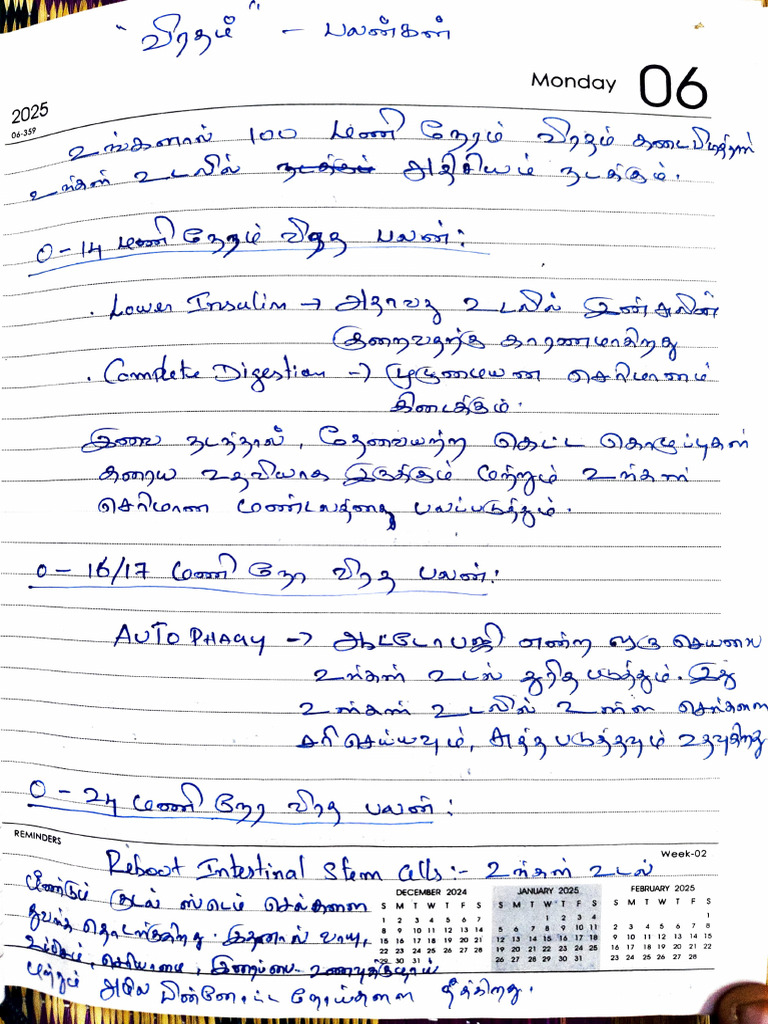 "விரதம்" - பலன்கள்
Monday 06
2025
06-359
உங்களால் 100 மணி நேரம் விரதம் கடைபிடித்தால்
உங்கள் உடலில் அதிசியம் நடக்கும்.
0-14 மணி நேரம் விரத பலன்:
. Lower Insulin → அதாவது உடலில் இன்சுலின்
குறைவதற்கு காரணமாகிறது
. Complete Digestion → முழுமையான செரிமானம்
கிடைக்கும்.
இவை நடந்தால், தேவையற்ற கெட்ட கொழுப்புகள்
கரைய உதவியாக இருக்கும் மற்றும் உங்கள்
செரிமான மண்டலத்தை பலப்படுத்தும்.
0 - 16/17 மணி நேர விரத பலன்:
AUTOPHAGY → ஆட்டோபஜி என்ற ஒரு செயலை
உங்கள் உடல் துரித படுத்தும். இது
உங்கள் உடலில் உள்ள செல்களை
சரி செய்யவும், சுத்த படுத்தவும் உதவுகிறது
0 - 24 மணி நேர விரத பலன்:
REMINDERS
Week-02
Reboot Intestinal Stem Cells:- உங்கள் உடல்
மீண்டும் குடல் ஸ்டெம் செல்களை
துவங்க தொடங்குகிறது. இதனால் வாயு,
மற்றும் நோய்களை தீர்க்கிறது.
DECEMBER 2024
S M T W T F S
1 2 3 4 5 6 7
8 9 10 11 12 13 14
15 16 17 18 19 20 21
22 23 24 25 26 27 28
29 30 31
JANUARY 2025
S M T W T F S
1 2 3 4
5 6 7 8 9 10 11
12 13 14 15 16 17 18
19 20 21 22 23 24 25
26 27 28 29 30 31
FEBRUARY 2025
S M T W T F S
1
2 3 4 5 6 7 8
9 10 11 12 13 14 15
16 17 18 19 20 21 22
23 24 25 26 27 28